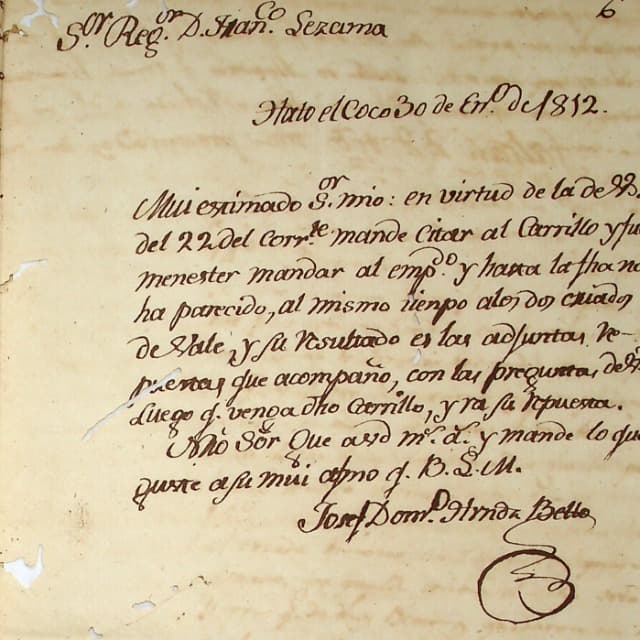 6
S.or Reg.or D. Fran.co Lezama
Hato el Coco 30 de En.o de 1812.
Mui estimado S.or mio: en virtud de la de
del 22 del corr.te mande citar al Carrillo y fu
menester mandar al emp.do y hasta la fha no
ha parecido, al mismo tienpo alos dos criados
de Vale, y su resultado es las adjuntas re-
puestas que acompaño, con las preguntas de
Luego q. venga dho Carrillo, yra su repuesta.
Nro Sor Que a vd m.s a.s y mande lo que
guste a su mui afmo q. B. S. M.
Josef Dom.o Hrndz Bello